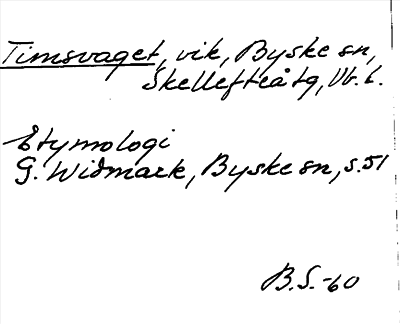 Timsvaget, vik, Byske sn,
Skellefteå tg, Vb. l.
Etymologi
G. Widmark, Byske sn, s. 51
B.S.-60